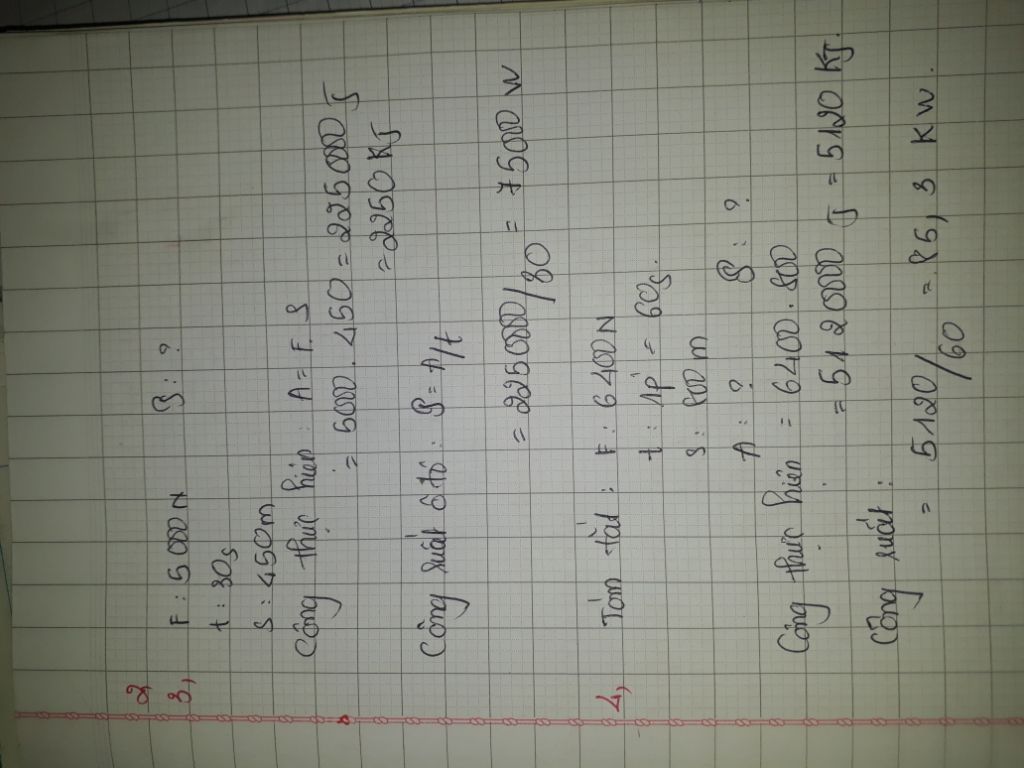 2
3,
F : 5000 N    P : ?
t : 30s
S : 450m
Công thực hiện : A = F. S
= 5000 . 450 = 2250000 J
= 2250 KJ
Công suất ô tô : P = A/t
= 2250000/30 = 75000 W
4, Tóm tắt : F : 6400 N
t : 1p' = 60s.
S : 800 m
A : ?    P : ?
Công thực hiện = 6400 . 800
= 5120000 J = 5120 KJ.
Công suất :
= 5120/60 = 85,3 KW.